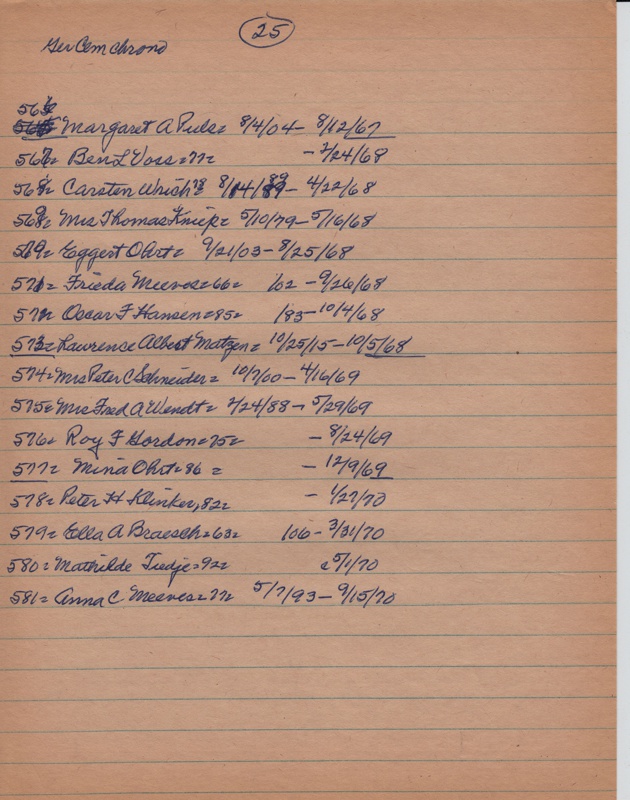 25
Ger Cem chrono
566 = Margaret A Puls = 8/4/04 - 8/12/67
567 = Ben L Voss = 77 = - 7/24/68
568 = Carsten Wriich 78 8/14/89 - 4/22/68
569 = Mrs Thomas Kniep = 5/10/79 - 5/16/68
Eggert Ohrt = 9/21/03 - 8/25/68
571 = Frieda Meeves = 66 = /02 - 9/26/68
572 = Oscar F Hansen = 85 = /83 - 10/4/68
573 = Lawrence Albert Matzen = 10/25/15 - 10/5/68
574 = Mrs Peter C Schneider = 10/7/00 - 4/16/69
575 = Mrs Fred A Wendt = 2/24/88 - 5/29/69
576 = Roy F Gordon = 75 = - 8/24/69
577 = Mina Ohrt = 86 = - 12/9/69
578 = Peter H Klinker, 82 = - 1/27/70
579 = Ella A Braesch = 63 = /06 - 3/31/70
580 = Mathilde Tiedje = 92 = c 5/1/70
581 = Anna C Meeves = 77 = 5/7/93 - 9/15/70